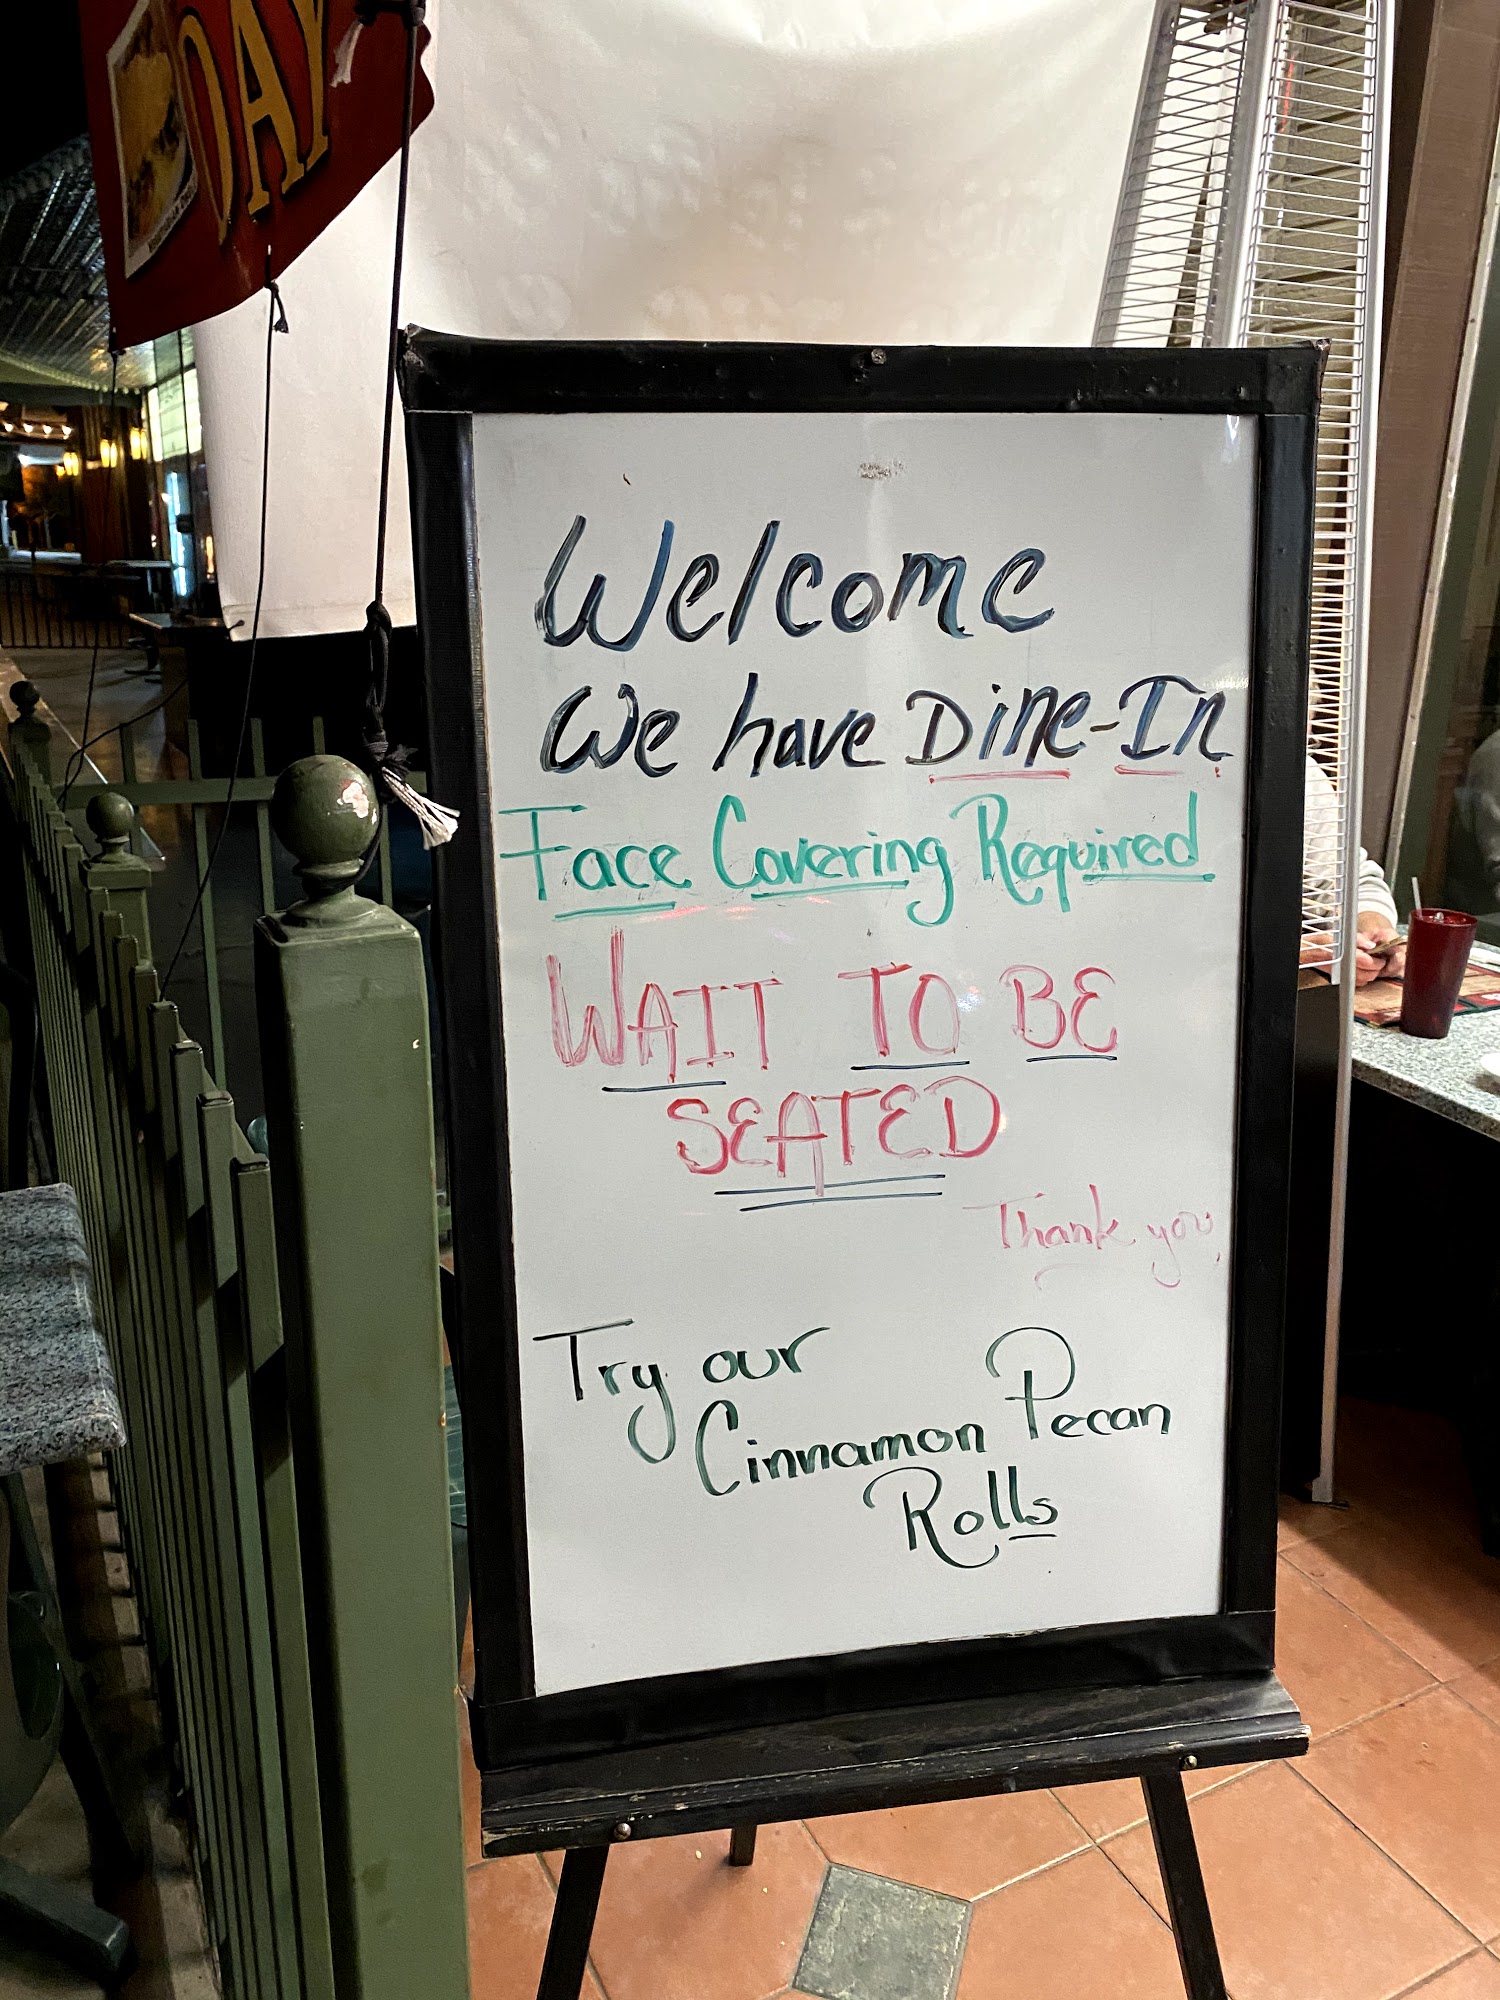 DAY
Welcome
We have Dine-In
Face Covering Required
WAIT TO BE
SEATED
Thank you
Try our
Cinnamon Pecan
Rolls